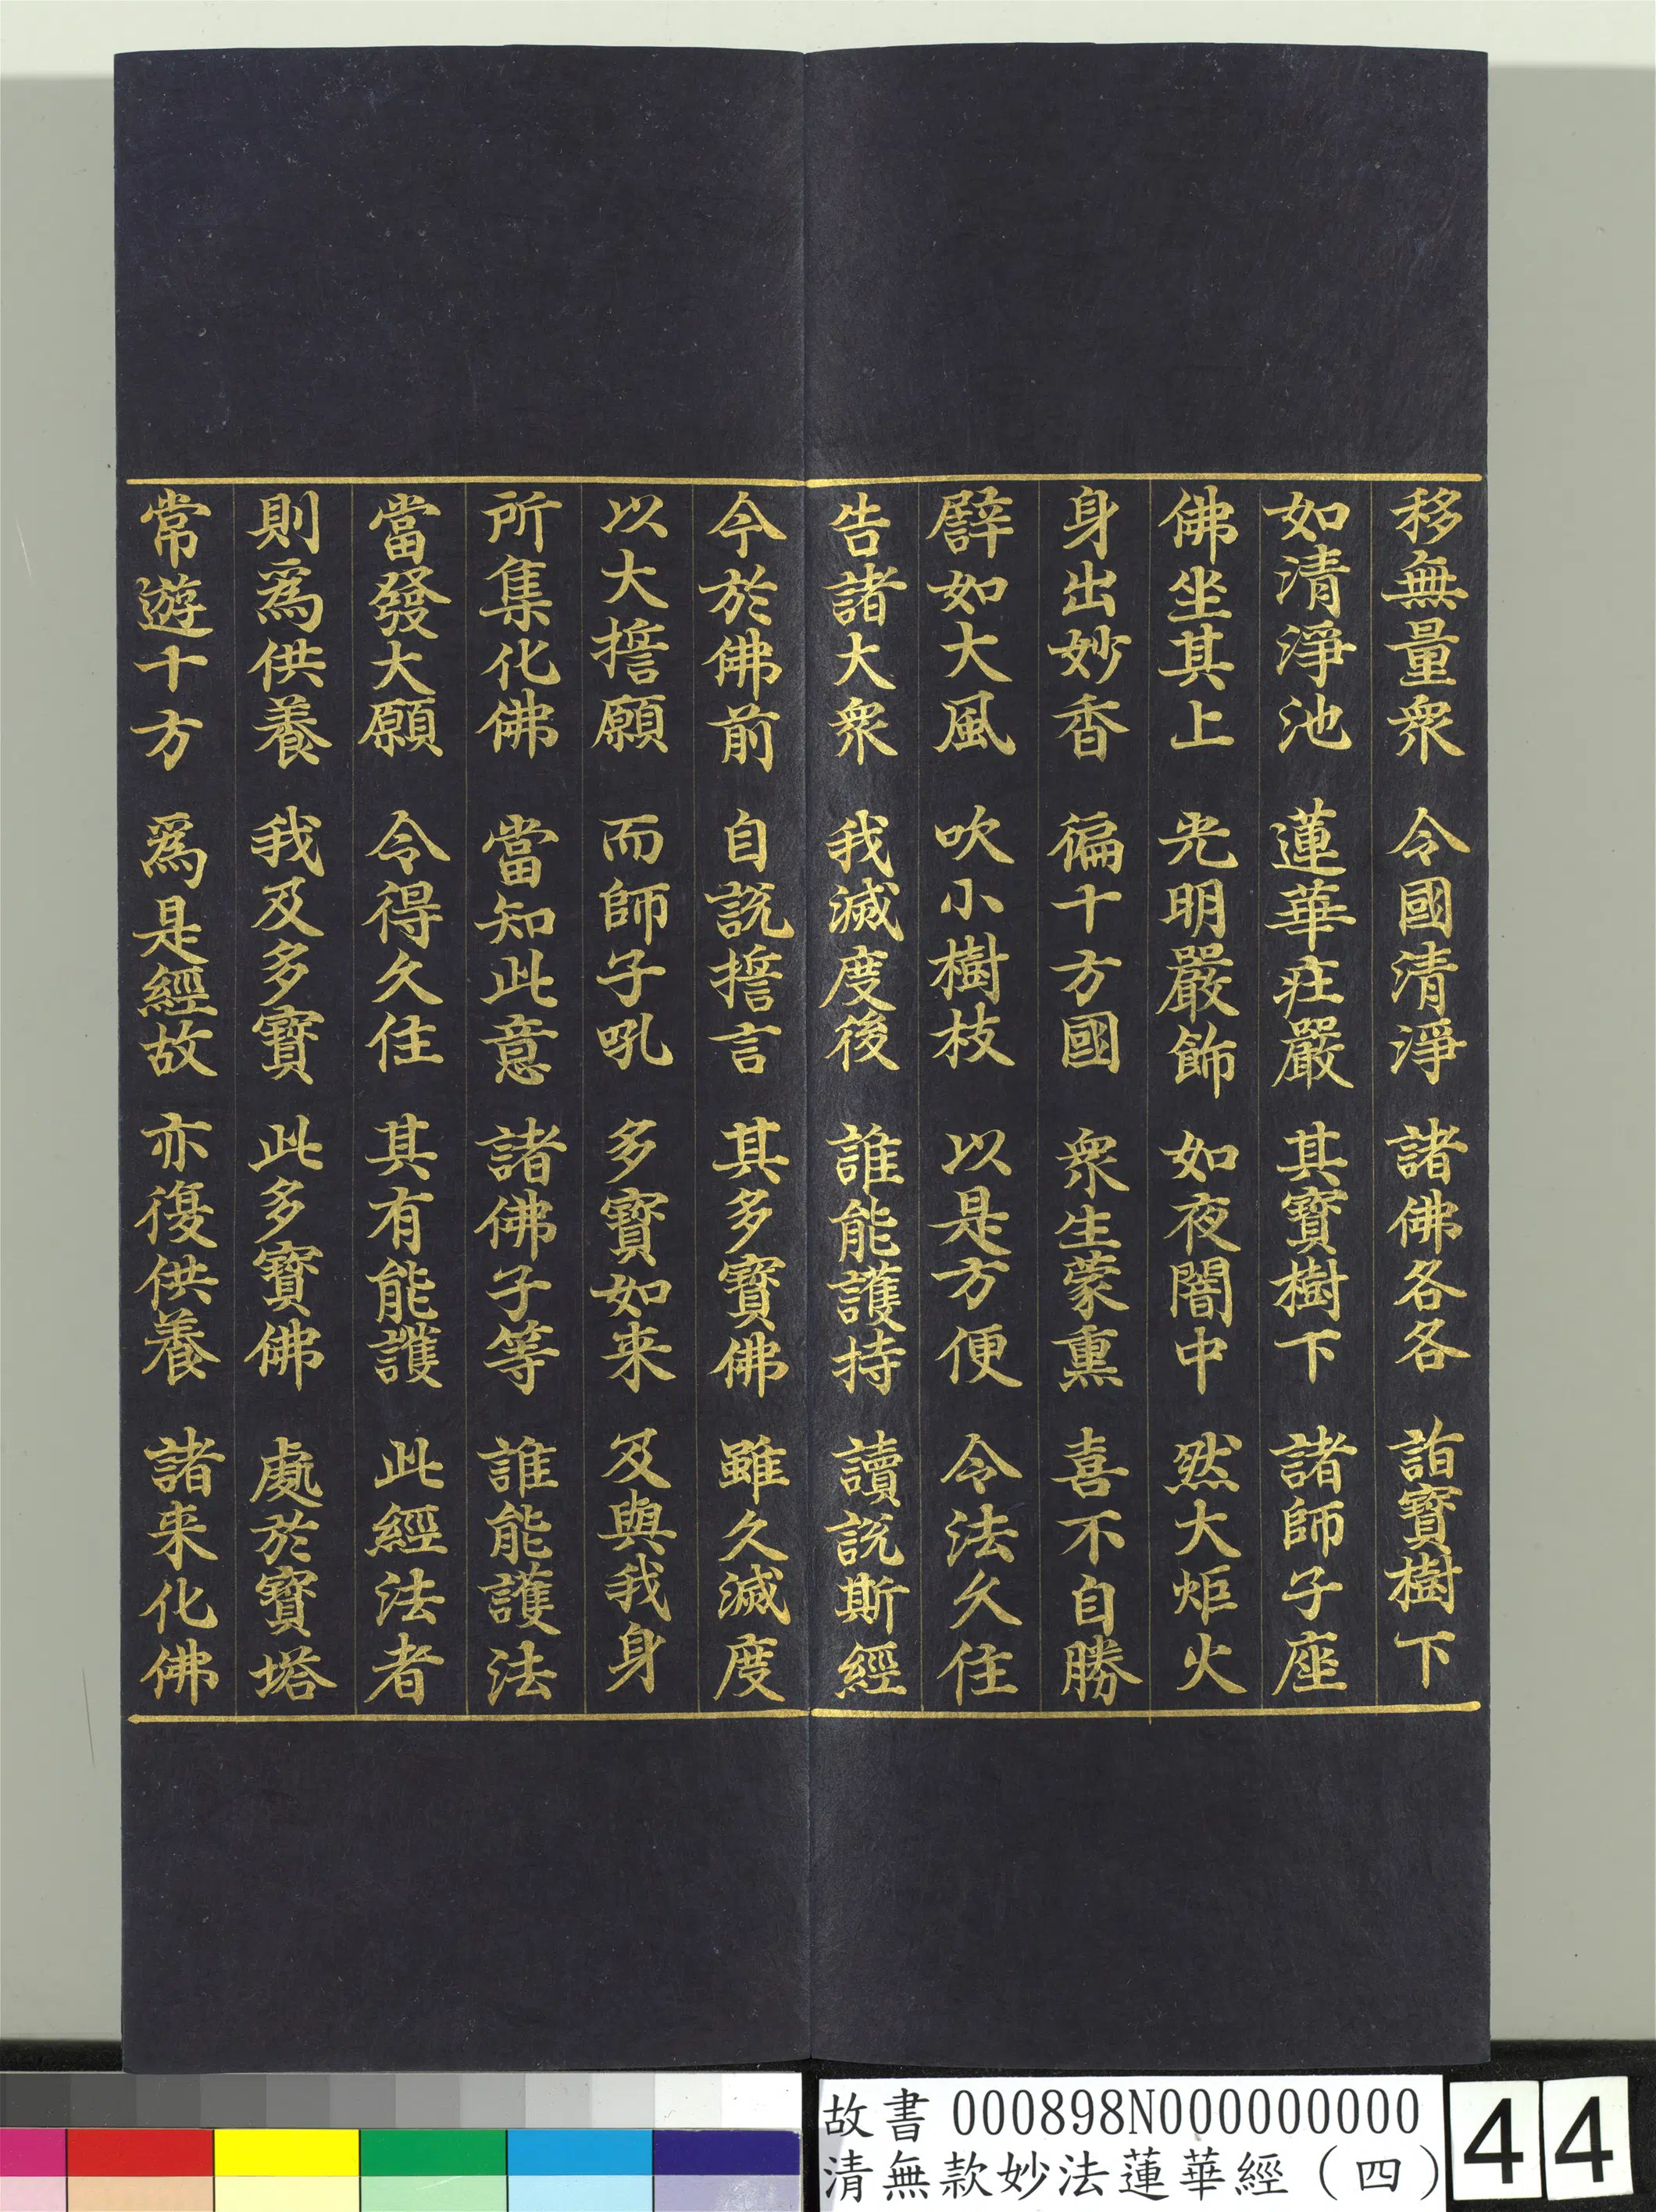 移無量衆　令國清淨　諸佛各各　詣寶樹下
如清淨池　蓮華莊嚴　其寶樹下　諸師子座
佛坐其上　光明嚴飾　如夜闇中　然大炬火
身出妙香　徧十方國　衆生蒙熏　喜不自勝
譬如大風　吹小樹枝　以是方便　令法久住
告諸大衆　我滅度後　誰能護持　讀說斯經
今於佛前　自說誓言　其多寶佛　雖久滅度
以大誓願　而師子吼　多寶如来　及與我身
所集化佛　當知此意　諸佛子等　誰能護法
當發大願　令得久住　其有能護　此經法者
則爲供養　我及多寶　此多寶佛　處於寶塔
常遊十方　爲是經故　亦復供養　諸来化佛
故書 000898N000000000
清無款妙法蓮華經（四）
44